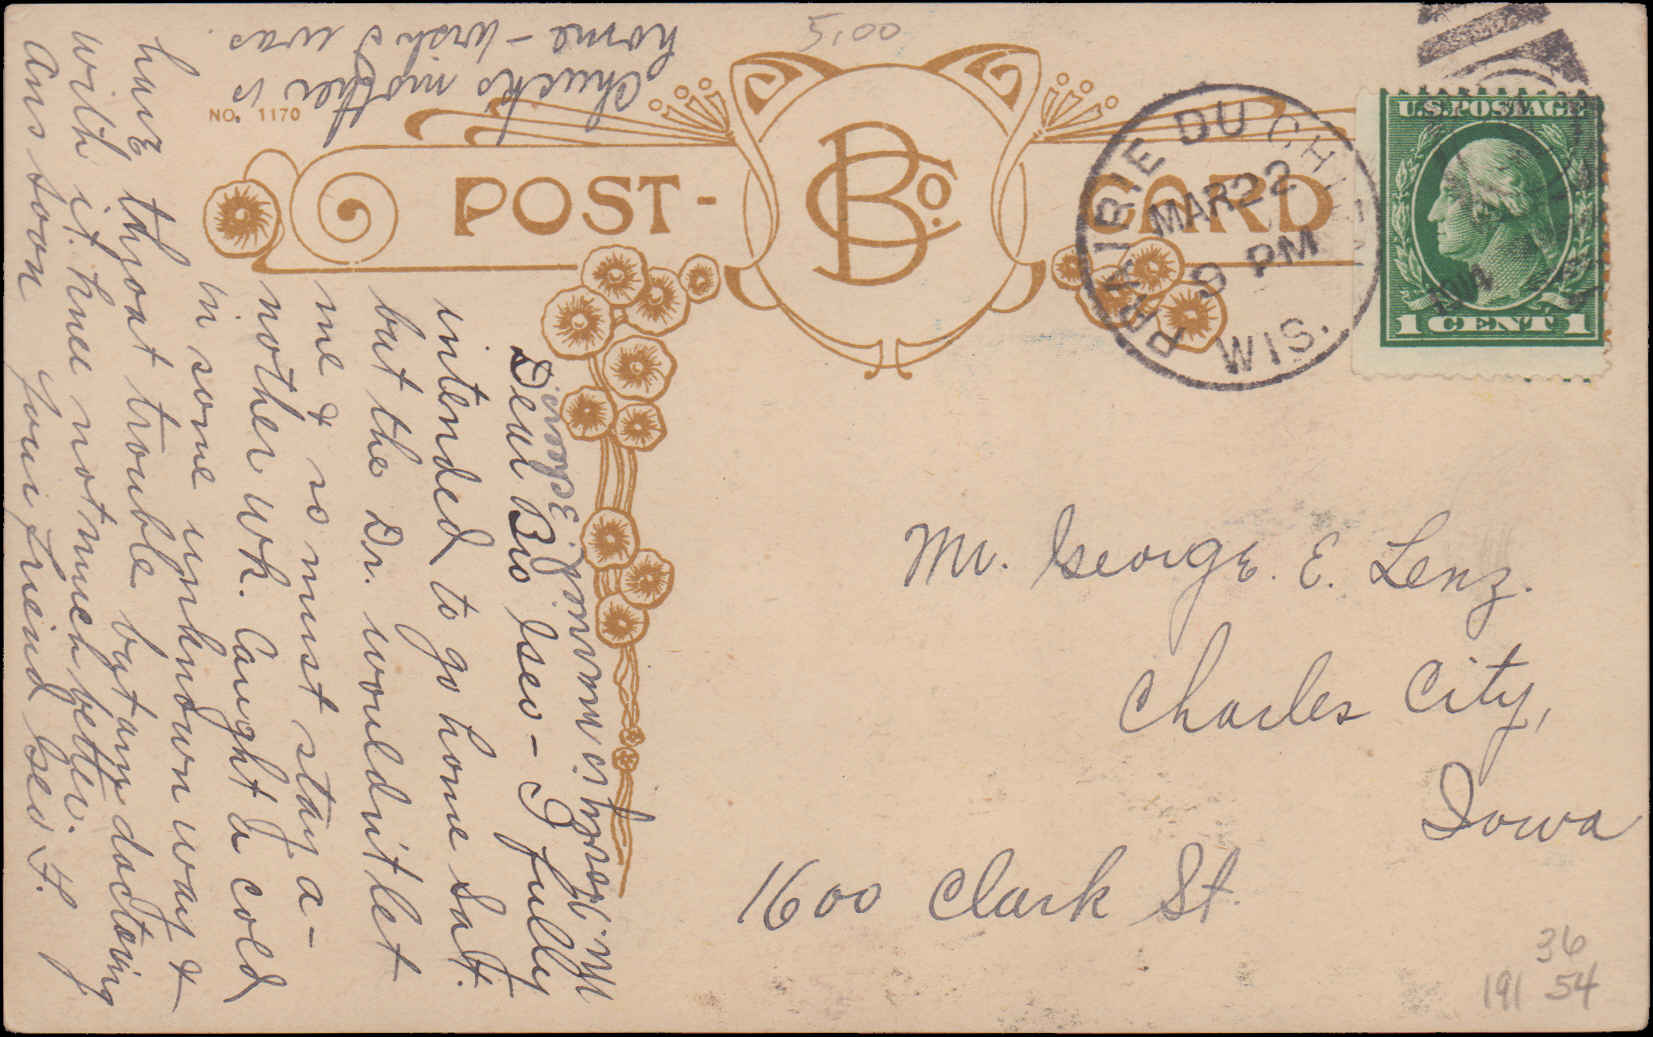 5.00
NO. 1170
POST-CARD
B Co.
PRAIRIE DU CHIEN
MAR 22
9 PM
WIS.
U.S. POSTAGE
1 CENT 1
Mr. George. E. Lenz.
Charles City,
Iowa
1600 Clark St.
36
191 54
Dear Bro Geo - I fully
intended to go home Sat.
but the Dr. wouldn't let
me & so must stay a-
nother wk. Caught a cold
in some unknown way &
have throat trouble but am doctoring
with it. hand not much better.
Ans soon your friend Geo H.
Chuck's mother is
home - wish I was.